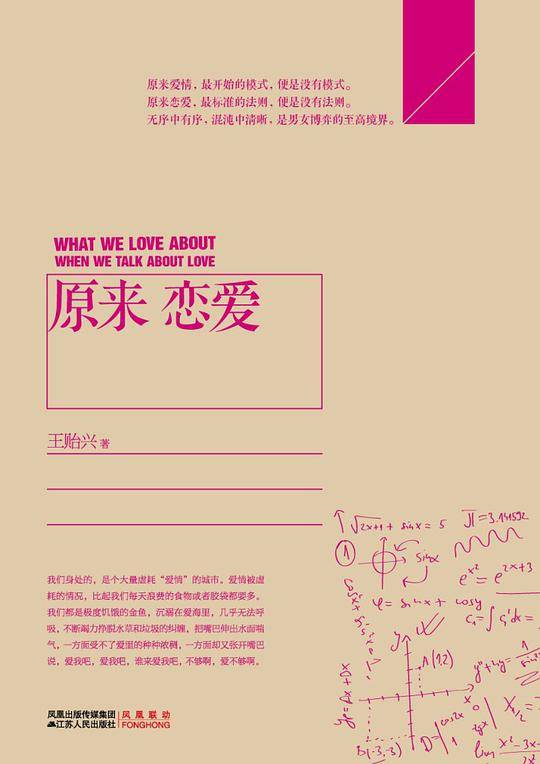 原来爱情，最开始的模式，便是没有模式。
原来恋爱，最标准的法则，便是没有法则。
无序中有序，混沌中清晰，是男女博弈的至高境界。
WHAT WE LOVE ABOUT
WHEN WE TALK ABOUT LOVE
原来 恋爱
王贻兴 著
我们身处的，是个大量虚耗“爱情”的城市。爱情被虚
耗的情况，比起我们每天浪费的食物或者胶袋都要多。
我们都是极度饥饿的金鱼，沉溺在爱海里，几乎无法呼
吸，不断竭力挣脱水草和垃圾的纠缠，把嘴巴伸出水面喘
气，一方面受不了爱里的种种浓稠，一方面却又张开嘴巴
说，爱我吧，爱我吧，谁来爱我吧，不够啊，爱不够啊。
√2x+1 + sinx = 5
π = 3.141592
1
sinx
e^x² = e^2x+3
φ = sinx + cosy
A(1,2)
B(-3,-3)
凤凰出版传媒集团
江苏人民出版社
凤凰联动
FONGHONG